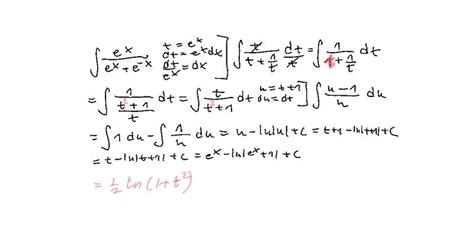 ∫ e^x / (e^x + e^-x), t = e^x, dt = e^x dx, dt/e^x = dx ] ∫ t / (t + 1/t) dt/t = ∫ 1 / (t + 1/t) dt
= ∫ 1 / ((t+1)/t) dt = ∫ t / (t+1) dt u = t+1 du = dt ] ∫ (u-1)/u du
= ∫ 1 du - ∫ 1/u du = u - ln|u| + c = t+1 - ln|t+1| + c
= t - ln|t+1| + c = e^x - ln|e^x + 1| + c
= 1/2 ln (1+t^2)